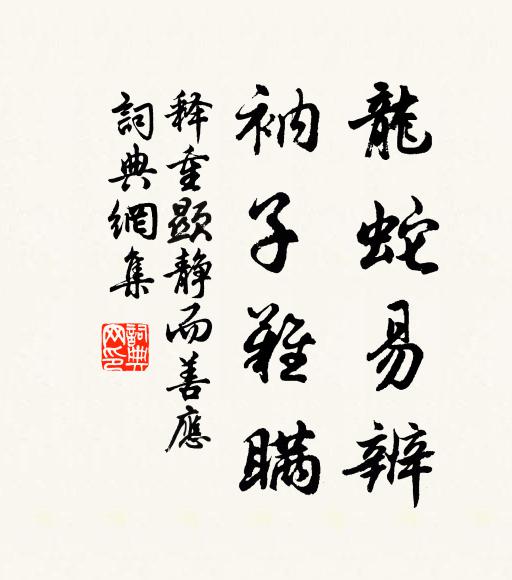 龍蛇易辨
衲子難瞞
释重顯静而善應
詞典網集
詞典网印